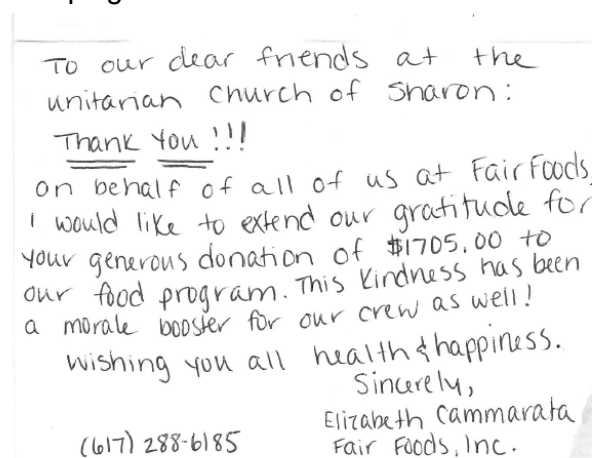 To our dear friends at the
unitarian Church of Sharon:
Thank You !!!
on behalf of all of us at Fair Foods,
I would like to extend our gratitude for
your generous donation of $1705.00 to
our food program. This Kindness has been
a morale booster for our crew as well!
wishing you all health & happiness.
Sincerely,
Elizabeth Cammarata
(617) 288-6185 Fair Foods, Inc.